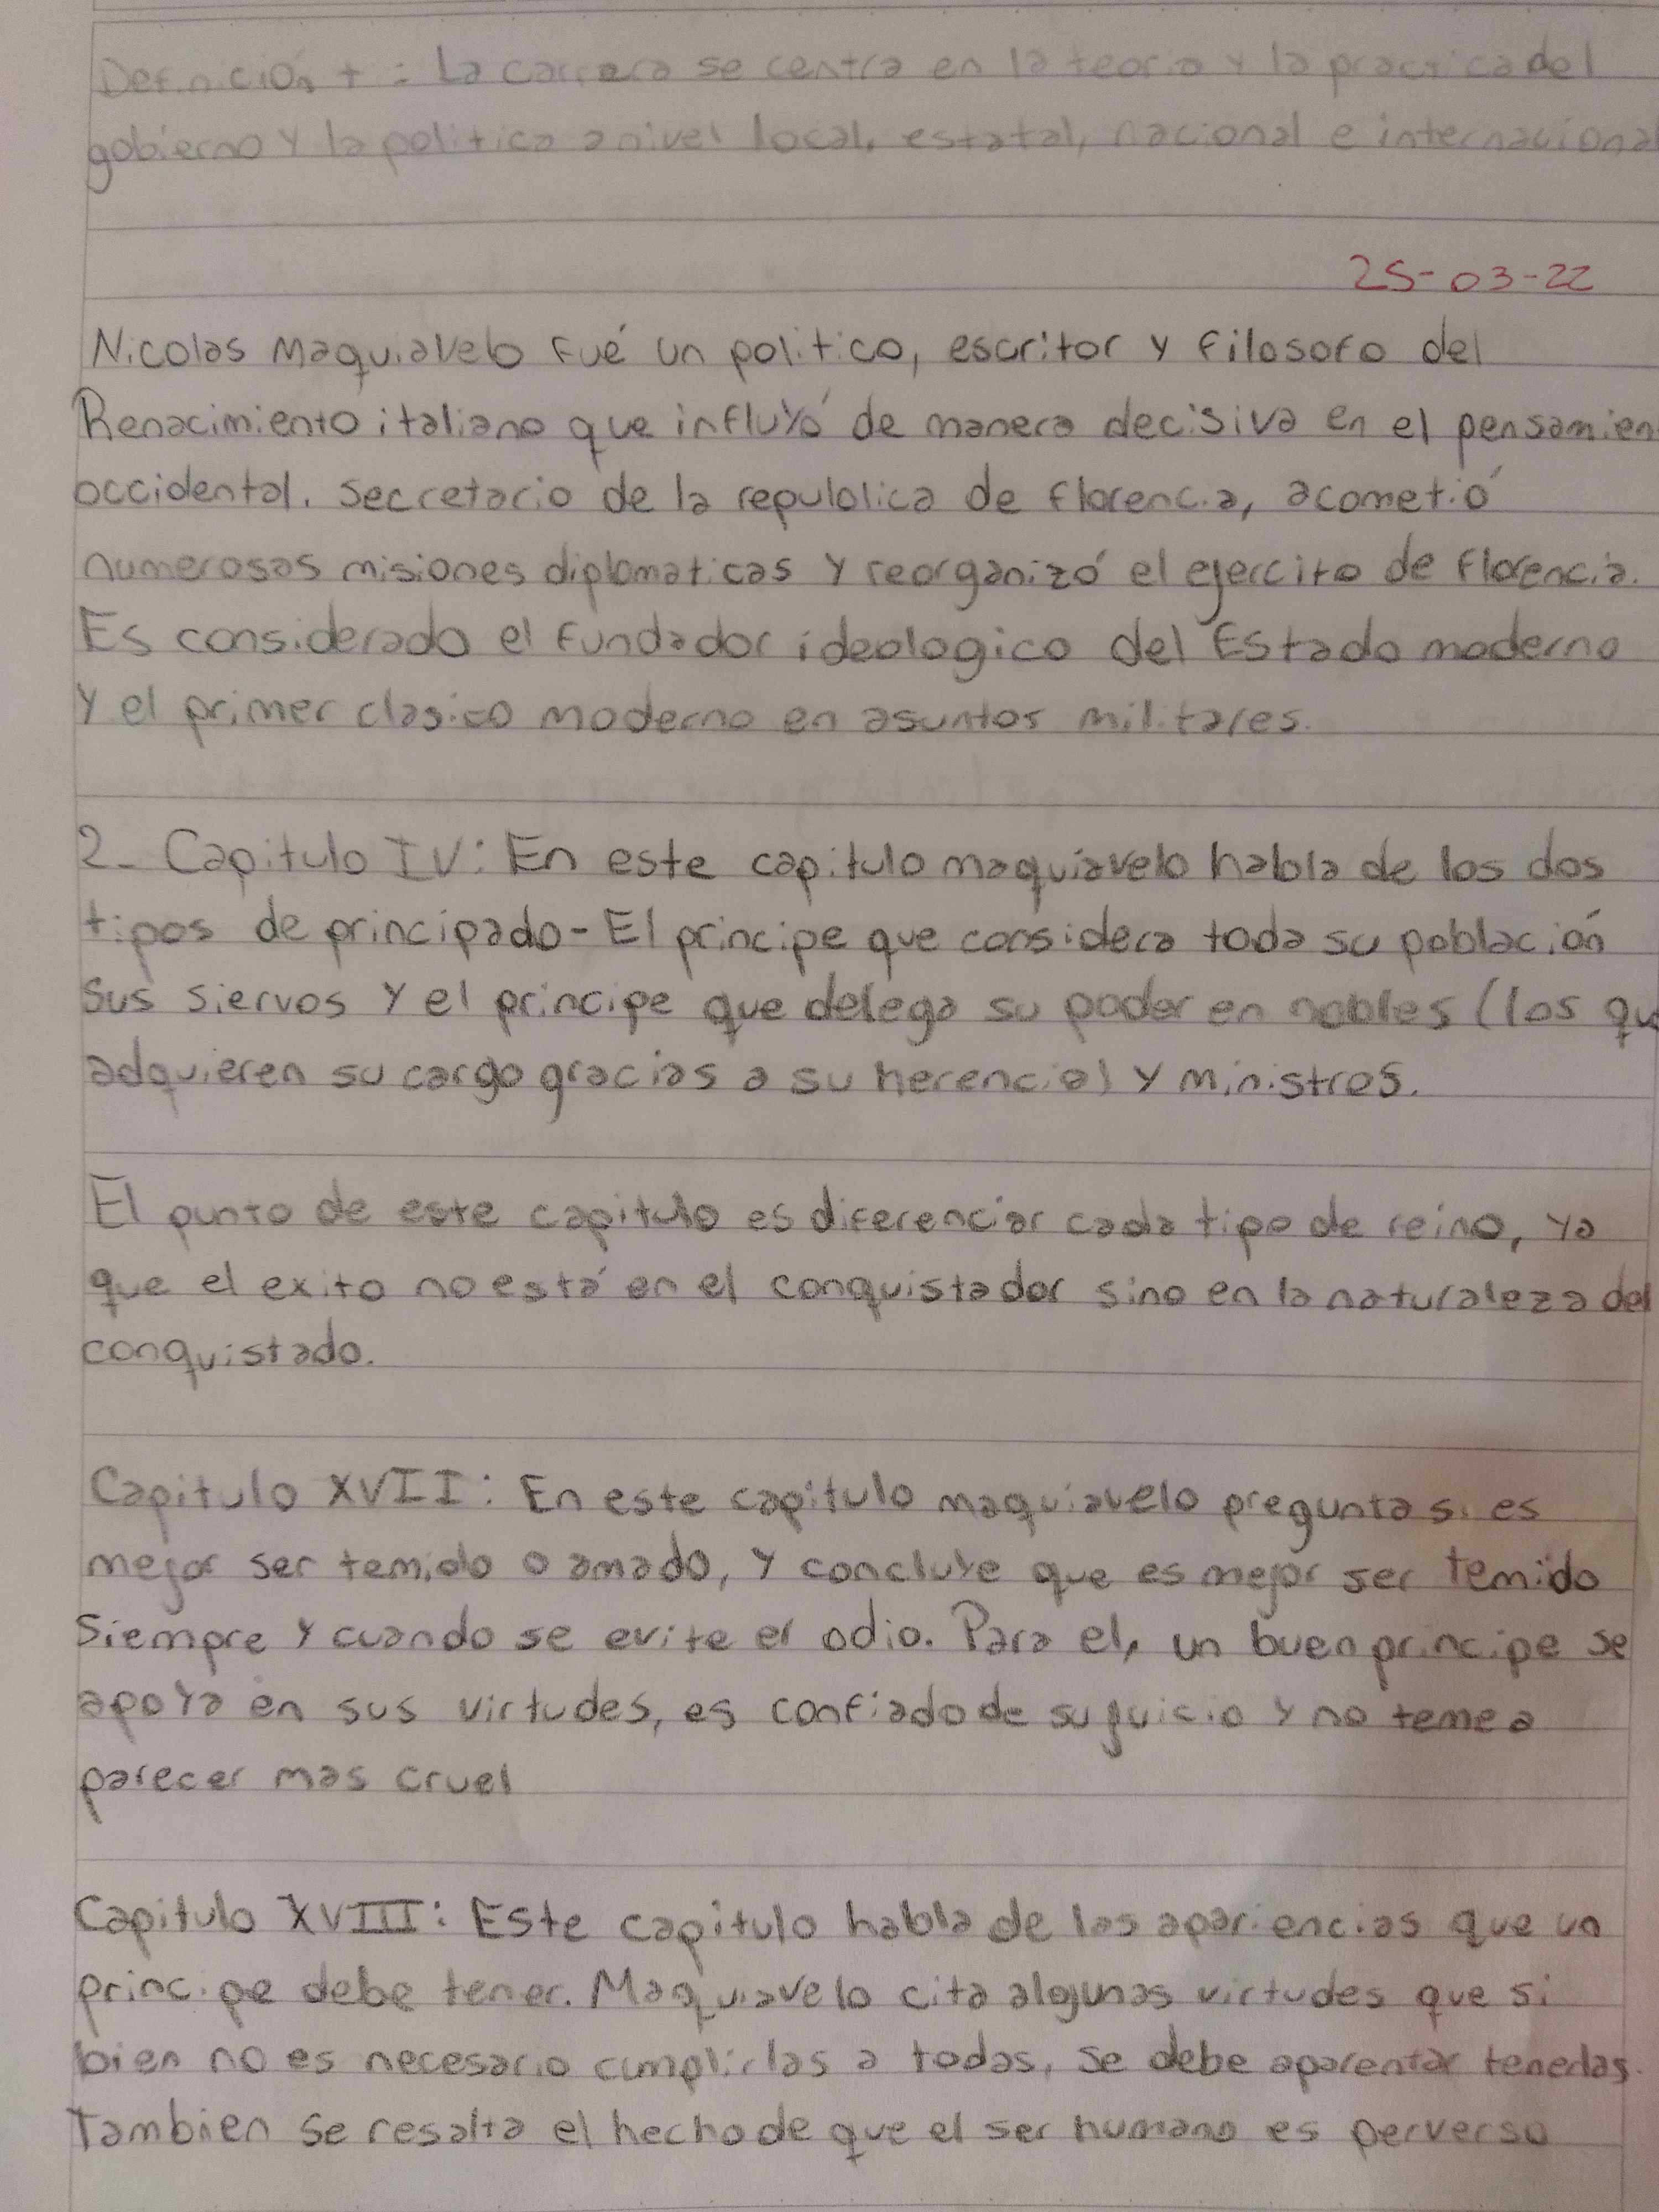 Definición + : La carrera se centra en la teoria y la practica del
gobierno y la politica a nivel local, estatal, nacional e internacional
25-03-22
Nicolas Maquiavelo fué un politico, escritor y filosofo del
Renacimiento italiano que influyó de manera decisiva en el pensamien
occidental. Secretario de la republica de florencia, acometió
numerosos misiones diplomaticas y reorganizó el ejercito de florencia.
Es considerado el fundador ideologico del Estado moderno
y el primer clasico moderno en asuntos militares.
2- Capitulo IV: En este capitulo maquiavelo habla de los dos
tipos de principado - El principe que considera toda su población
sus siervos y el principe que delega su poder en nobles (los qu
adquieren su cargo gracias a su herencia) y ministros.
El punto de este capitulo es diferenciar cada tipo de reino, ya
que el exito no está en el conquistador sino en la naturaleza del
conquistado.
Capitulo XVII: En este capitulo maquiavelo pregunta si es
mejor ser temido o amado, y concluye que es mejor ser temido
siempre y cuando se evite el odio. Para el, un buen principe se
apoya en sus virtudes, es confiado de su juicio y no teme a
parecer mas cruel
Capitulo XVIII: Este capitulo habla de las apariencias que un
principe debe tener. Maquiavelo cita algunas virtudes que si
bien no es necesario cumplirlas a todas, se debe aparentar tenerlas.
Tambien se resalta el hecho de que el ser humano es perverso